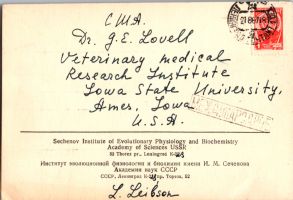 США.
Dr. G.E. Lovell
Veterinary medical
Research Institute
Iowa State University,
Ames, Iowa
U.S.A.
МЕЖДУНАРОДНОЕ
Sechenov Institute of Evolutionary Physiology and Biochemistry
Academy of Sciences USSR
52 Thorez pr., Leningrad K-223
Институт эволюционной физиологии и биохимии имени И. М. Сеченова
Академии наук СССР
СССР, Ленинград К-223 пр. Тореза, 52
L. Leibson